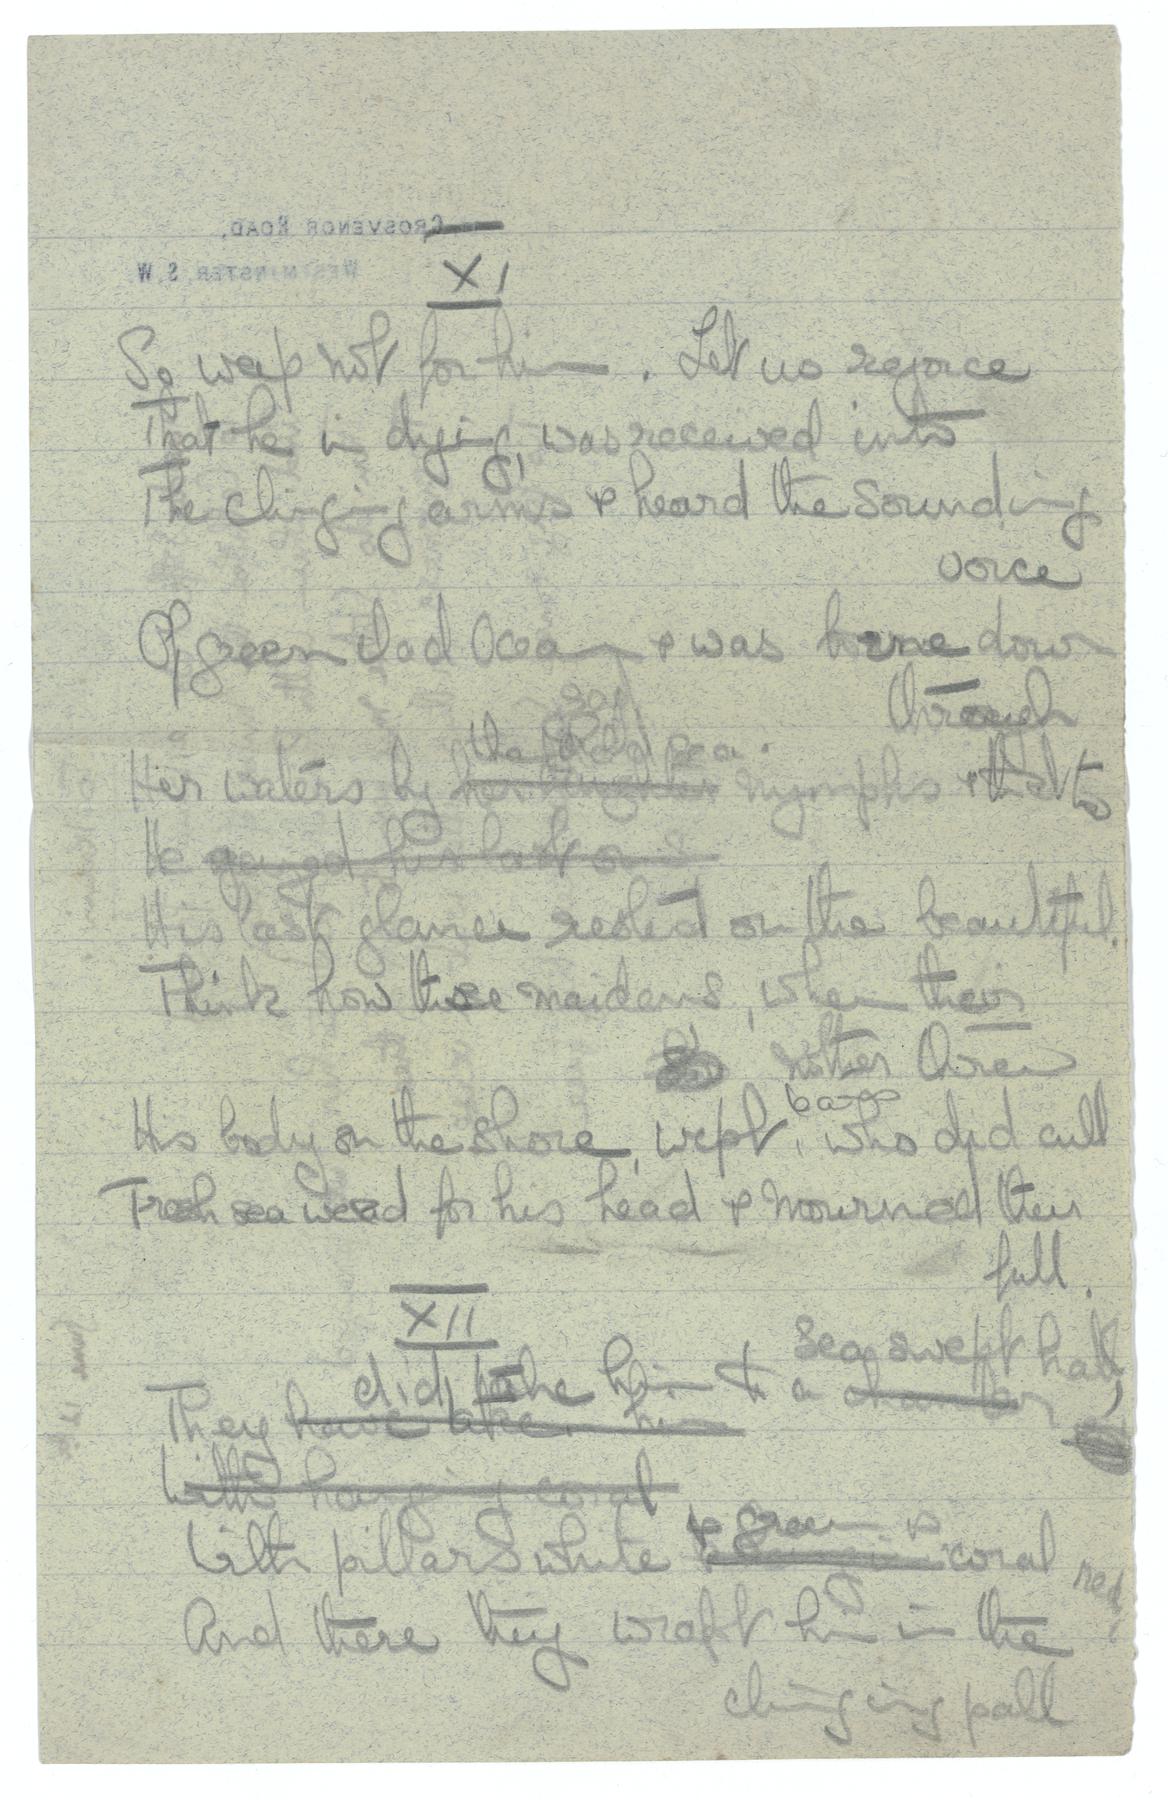 GROSVENOR ROAD,
WESTMINSTER, S.W.
XI
So weep not for him. Let us rejoice
That he in dying, was received into
The clinging arms & heard the sounding
voice
Of green clad Ocean & was borne down
through
the sea
Her waters by her nymphs & that to
He gazed his last on
His last glance rested on the beautiful.
Think how those maidens, when their
mother threw
bare
His body on the shore, wept, who did cull
Fresh sea weed for his head & mourned their
full.
XII
sea swept hall,
did take him to a chamber
They have taken him
With hanging coral
& green &
With pillars white coral red.
And there they wrapt him in the
clinging pall